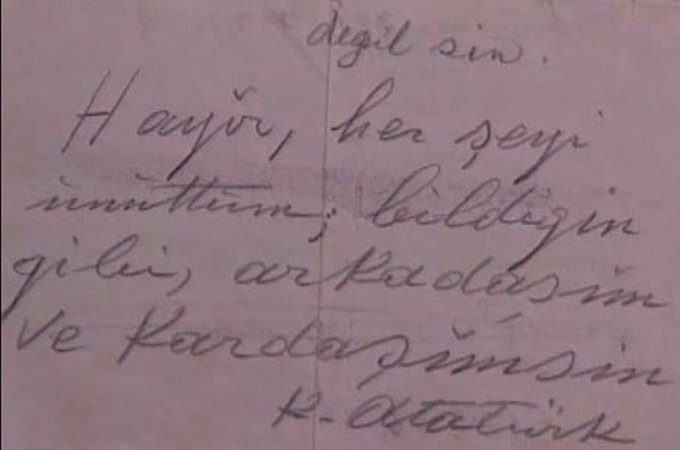 değil sin.
Hayır, her şeyi
unuttum; bildigin
gibi, arkadaşım
ve Kardaşımsın
K. Atatürk